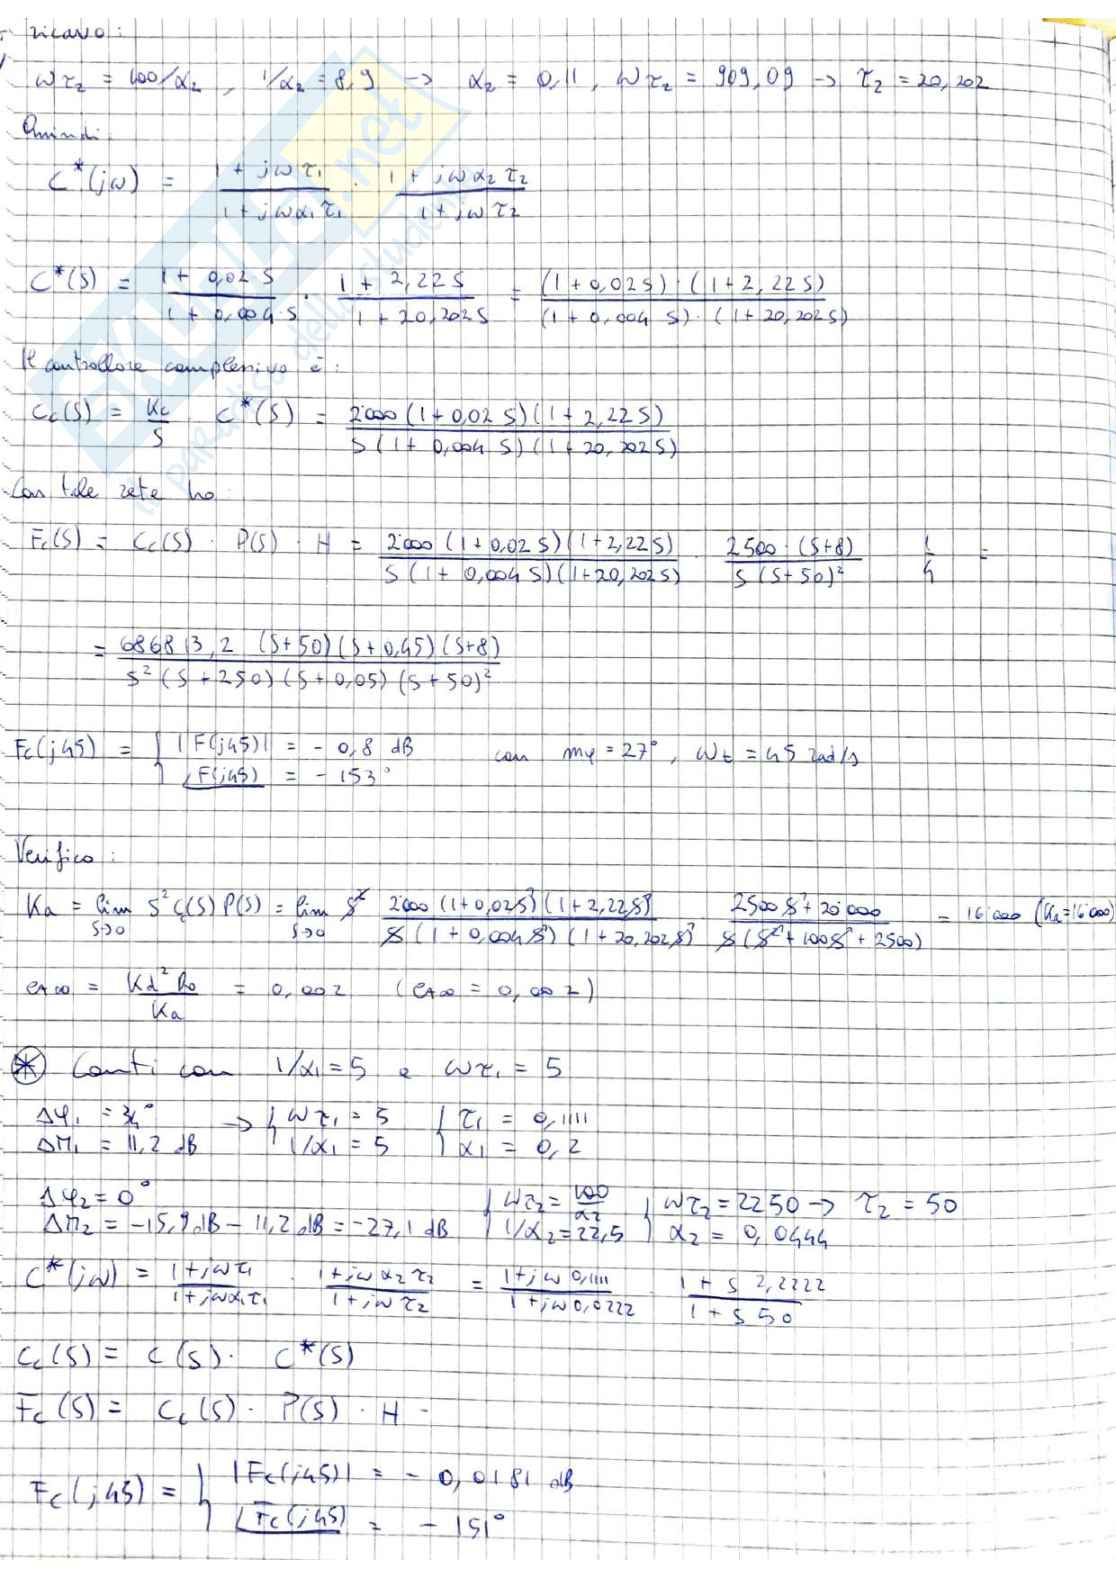 ricavo:
ωτ₂ = 100/α₂ , 1/α₂ = 8,9 → α₂ = 0,11 , ωτ₂ = 909,09 → τ₂ = 20,202
Quindi:
C*(jω) = (1 + jωτ₁)/(1 + jωα₁τ₁) · (1 + jωα₂τ₂)/(1 + jωτ₂)
C*(S) = (1 + 0,02 S)/(1 + 0,004 S) · (1 + 2,22 S)/(1 + 20,202 S) = (1 + 0,02 S)·(1 + 2,22 S)/(1 + 0,004 S)·(1 + 20,202 S)
Il controllore complessivo è:
Cc(S) = Kc/S C*(S) = 2'000 (1 + 0,02 S)(1 + 2,22 S)/S(1 + 0,004 S)(1 + 20,202 S)
Con tale rete ho:
Fc(S) = Cc(S) · P(S) · H = 2'000 (1 + 0,02 S)(1 + 2,22 S)/S(1 + 0,004 S)(1 + 20,202 S) · 2500·(S+8)/S(S+50)² · 1/4 =
= 686813,2 (S+50)(S+0,45)(S+8)/S²(S+250)(S+0,05)(S+50)²
Fc(j45) = { |F(j45)| = - 0,8 dB con mφ = 27°, ωt = 45 rad/s
∠F(j45) = - 153°
Verifico:
Ka = lim S→0 S² C(S) P(S) = lim S→0 S² 2'000 (1+0,02S)(1+2,22S)/S(1+0,004S)(1+20,202S) · 2500 S + 20'000/S(S²+100S+2500) = 16'000 (Ka=16'000)
e₄∞ = Kd² R₀/Ka = 0,002 (e₄∞ = 0,002)
* Conti con 1/α₁ = 5 e ωτ₁ = 5
Δφ₁ = 34° → { ωτ₁ = 5 { τ₁ = 0,1111
ΔM₁ = 11,2 dB 1/α₁ = 5 α₁ = 0,2
Δφ₂ = 0° { ωτ₂ = 100/α₂ { ωτ₂ = 2250 → τ₂ = 50
ΔM₂ = -15,9 dB - 11,2 dB = -27,1 dB 1/α₂ = 22,5 α₂ = 0,0444
C*(jω) = (1+jωτ₁)/(1+jωα₁τ₁) · (1+jωα₂τ₂)/(1+jωτ₂) = (1+jω 0,1111)/(1+jω 0,0222) · (1 + S 2,2222)/(1 + S 50)
Cc(S) = C(S) · C*(S)
Fc(S) = Cc(S) · P(S) · H
Fc(j45) = { |Fc(j45)| = - 0,0181 dB
∠Fc(j45) = - 151°
SKUOLA.net
il paradiso dello studente